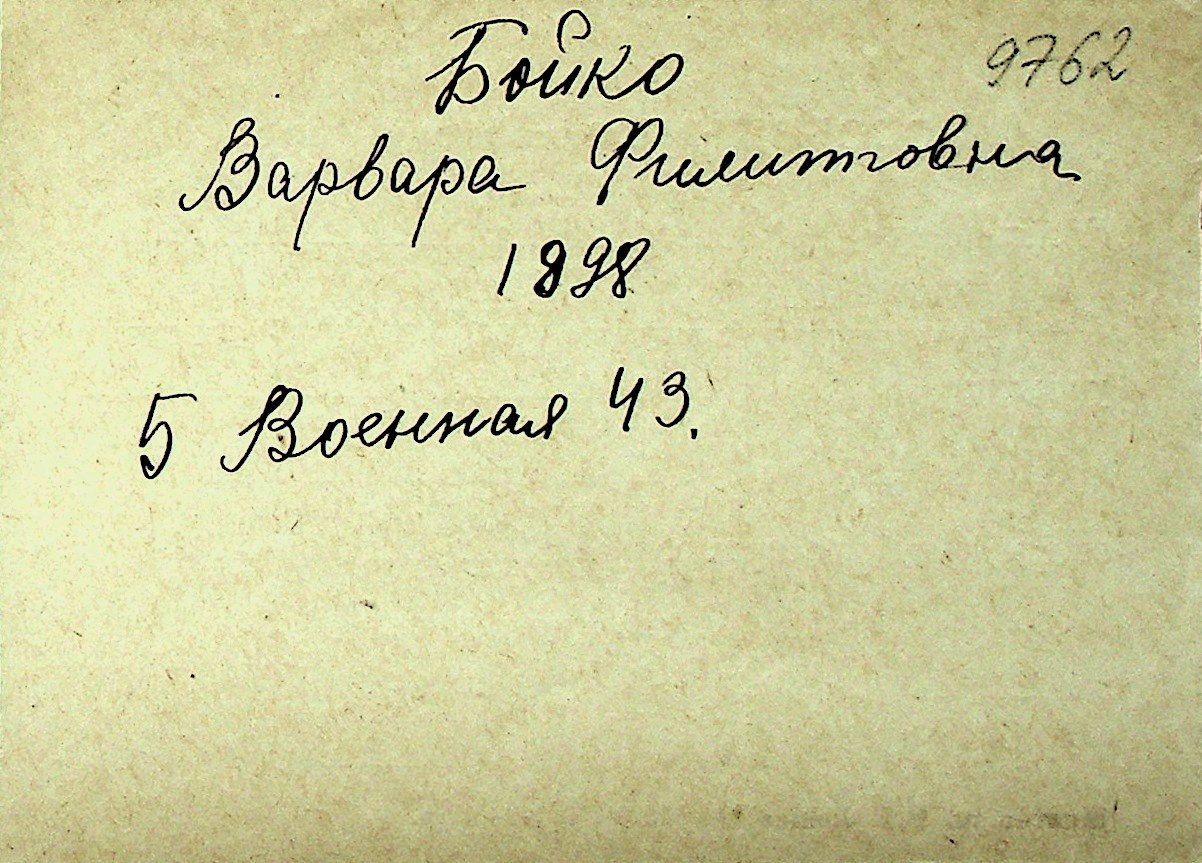 9762
Бойко
Варвара Филипповна
1898
5 Военная 43.